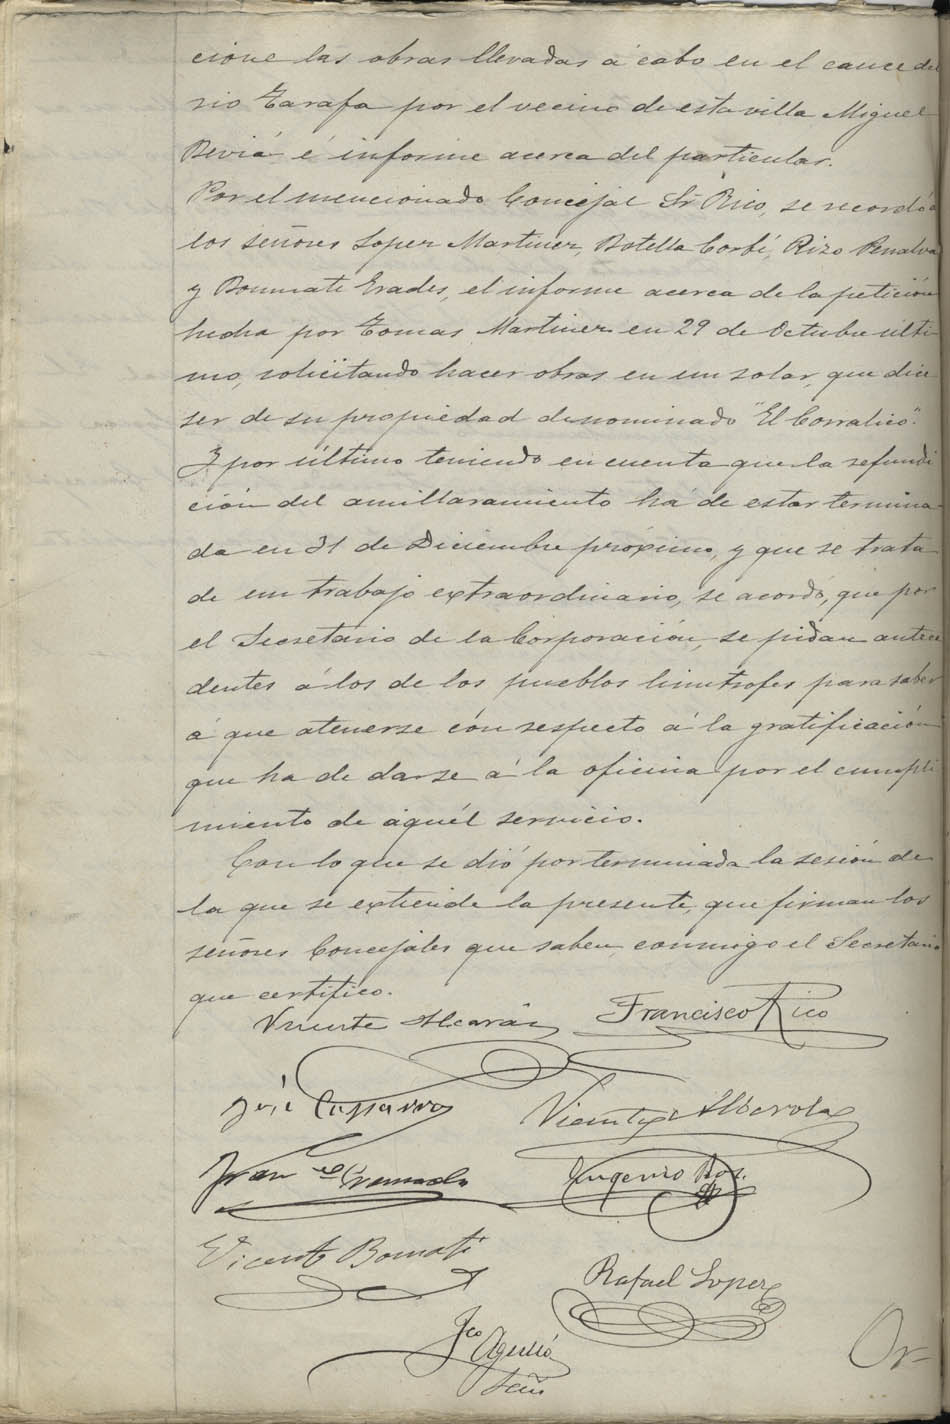 cione las obras llevadas á cabo en el cauce del
rio Tarafa por el vecino de esta villa Miguel
Beviá é informe acerca del particular.
Por el mencionado Concejal Sr Rico, se recordó á
los señores Lopez Martinez, Botella Corbí, Rizo Penalva
y Bonmati Erades, el informe acerca de la petición
hecha por Tomas Martinez en 29 de Octubre últi-
mo, solicitando hacer obras en un solar, que dice
ser de su propiedad denominado "El Corralico".
Y por último teniendo en cuenta que la refundi
ción del amillaramiento há de estar termina-
da en 31 de Diciembre próximo, y que se trata
de un trabajo extraordinario, se acordó, que por
el Secretario de la Corporación, se pidan antece
dentes á los de los pueblos limitrofes para saber
á que atenerse con respecto á la gratificación
que ha de darse á la oficina por el cumpli
miento de aquél servicio.
Con lo que se dió por terminada la sesión de
la que se extiende la presente, que firman los
señores Concejales que saben, conmigo el Secretario
que certifico.
Vicente Alcaráz Francisco Rico
José Vicente Alberola
Fran.co Eugenio Ros.
Vicente Bomati
Rafael Lopez
Fco Agulló
Srio
Or-